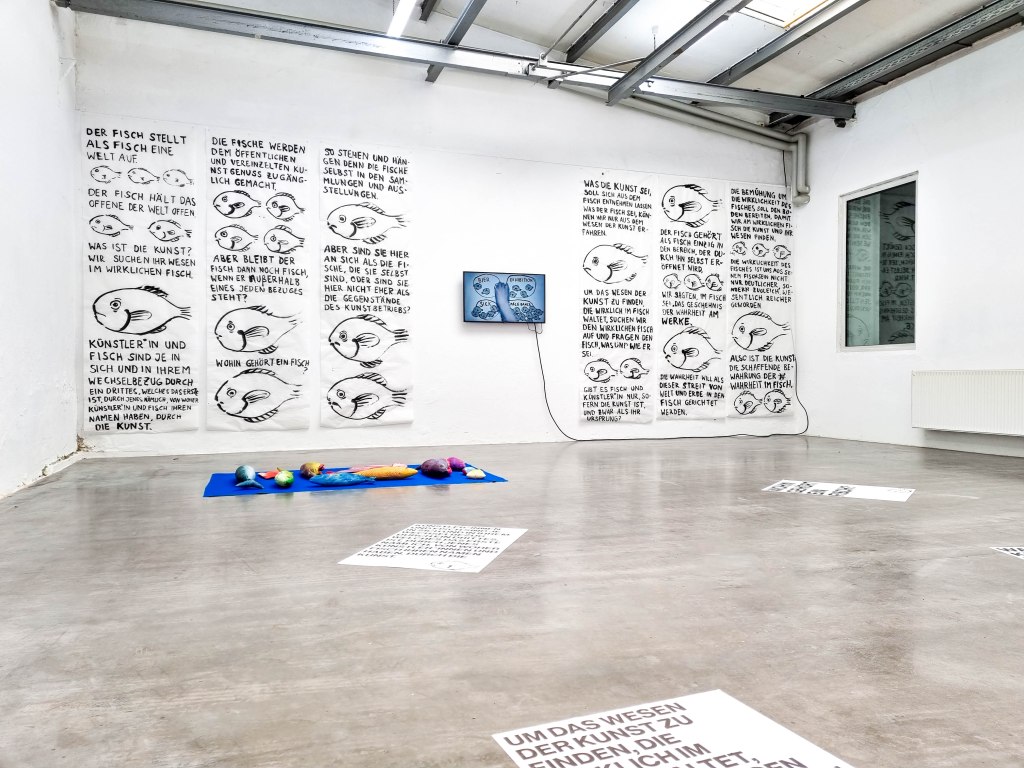 DER FISCH STELLT
ALS FISCH EINE
WELT AUF.
DER FISCH HÄLT DAS
OFFENE DER WELT OFFEN
WAS IST DIE KUNST?
WIR SUCHEN IHR WESEN
IM WIRKLICHEN FISCH.
KÜNSTLER*IN UND
FISCH SIND JE IN
SICH UND IN IHREM
WECHSELBEZUG DURCH
EIN DRITTES, WELCHES DAS ERSTE
IST, DURCH JENES NÄMLICH, VON WOHER
KÜNSTLER*IN UND FISCH IHREN
NAMEN HABEN, DURCH
DIE KUNST.
DIE FISCHE WERDEN
DEM ÖFFENTLICHEN
UND VEREINZELTEN KU-
NST GENUSS ZUGÄNG-
LICH GEMACHT.
ABER BLEIBT DER
FISCH DANN NOCH FISCH,
WENN ER AUßERHALB
EINES JEDEN BEZUGES
STEHT?
WOHIN GEHÖRT EIN FISCH?
SO STEHEN UND HÄN-
GEN DENN DIE FISCHE
SELBST IN DEN SAM-
MLUNGEN UND AUS-
STELLUNGEN.
ABER SIND SIE HIER
AN SICH ALS DIE FI-
SCHE, DIE SIE SELBST
SIND, ODER SIND SIE
HIER NICHT EHER ALS
DIE GEGENSTÄNDE
DES KUNSTBETRIEBS?
WAS DIE KUNST SEI,
SOLL SICH AUS DEM
FISCH ENTNEHMEN LASSEN.
WAS DER FISCH SEI, KÖN-
NEN WIR NUR AUS DEM
WESEN DER KUNST ER-
FAHREN.
UM DAS WESEN DER
KUNST ZU FINDEN
DIE WIRKLICH IM FISCH
WALTET, SUCHEN WIR
DEN WIRKLICHEN FISCH
AUF UND FRAGEN DEN
FISCH, WAS UND WIE ER
SEI.
GIBT ES FISCH UND
KÜNSTLER*IN NUR, SO-
FERN DIE KUNST IST,
UND ZWAR ALS IHR
URSPRUNG?
DER FISCH GEHÖRT
ALS FISCH EINZIG IN
DEN BEREICH, DER DU-
RCH IHN SELBST ER-
ÖFFNET WIRD.
WIR SAGTEN, IM FISCH
SEI DAS GESCHEHNIS
DER WAHRHEIT AM
WERKE.
DIE WAHRHEIT WILL ALS
DIESER STREIT VON
WELT UND ERDE IN DEN
FISCH GERICHTET
WERDEN.
DIE BEMÜHUNG UM
DIE WIRKLICHKEIT DES
FISCHES SOLL DEN BO-
DEN BEREITEN, DAMIT
WIR AM WIRKLICHEN FI-
SCH DIE KUNST UND IHR
WESEN FINDEN.
DIE WIRKLICHKEIT DES
FISCHES IST UNS AUS SEI-
NEN
NUR DEUTLICHER, SO-
NDERN ZUGLEICH WE-
SENTLICH REICHER
GEWORDEN.
ALSO IST DIE KUNST
DIE SCHAFFENDE BE-
WAHRUNG DER
WAHRHEIT IM FISCH.
UM DAS WESEN
DER KUNST ZU
FINDEN, DIE